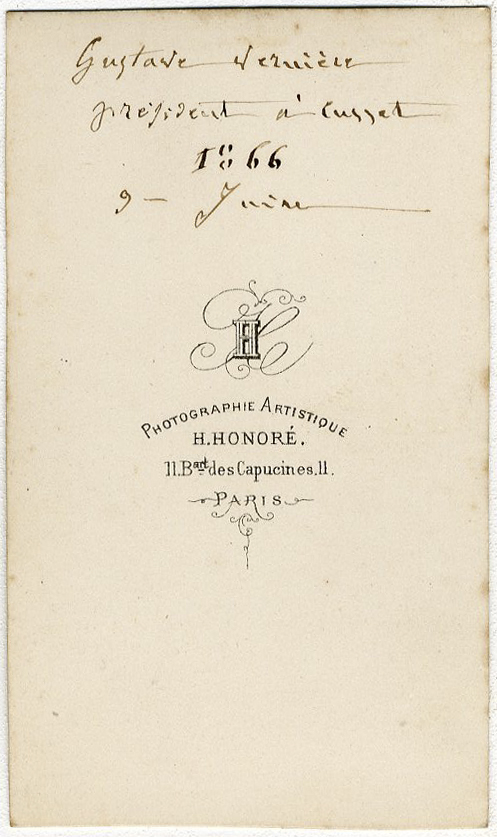 Gustave Vernière
président à Cusset
1866
9 - Juin
H
PHOTOGRAPHIE ARTISTIQUE
H. HONORÉ.
11. Bart des Capucines. 11.
PARIS